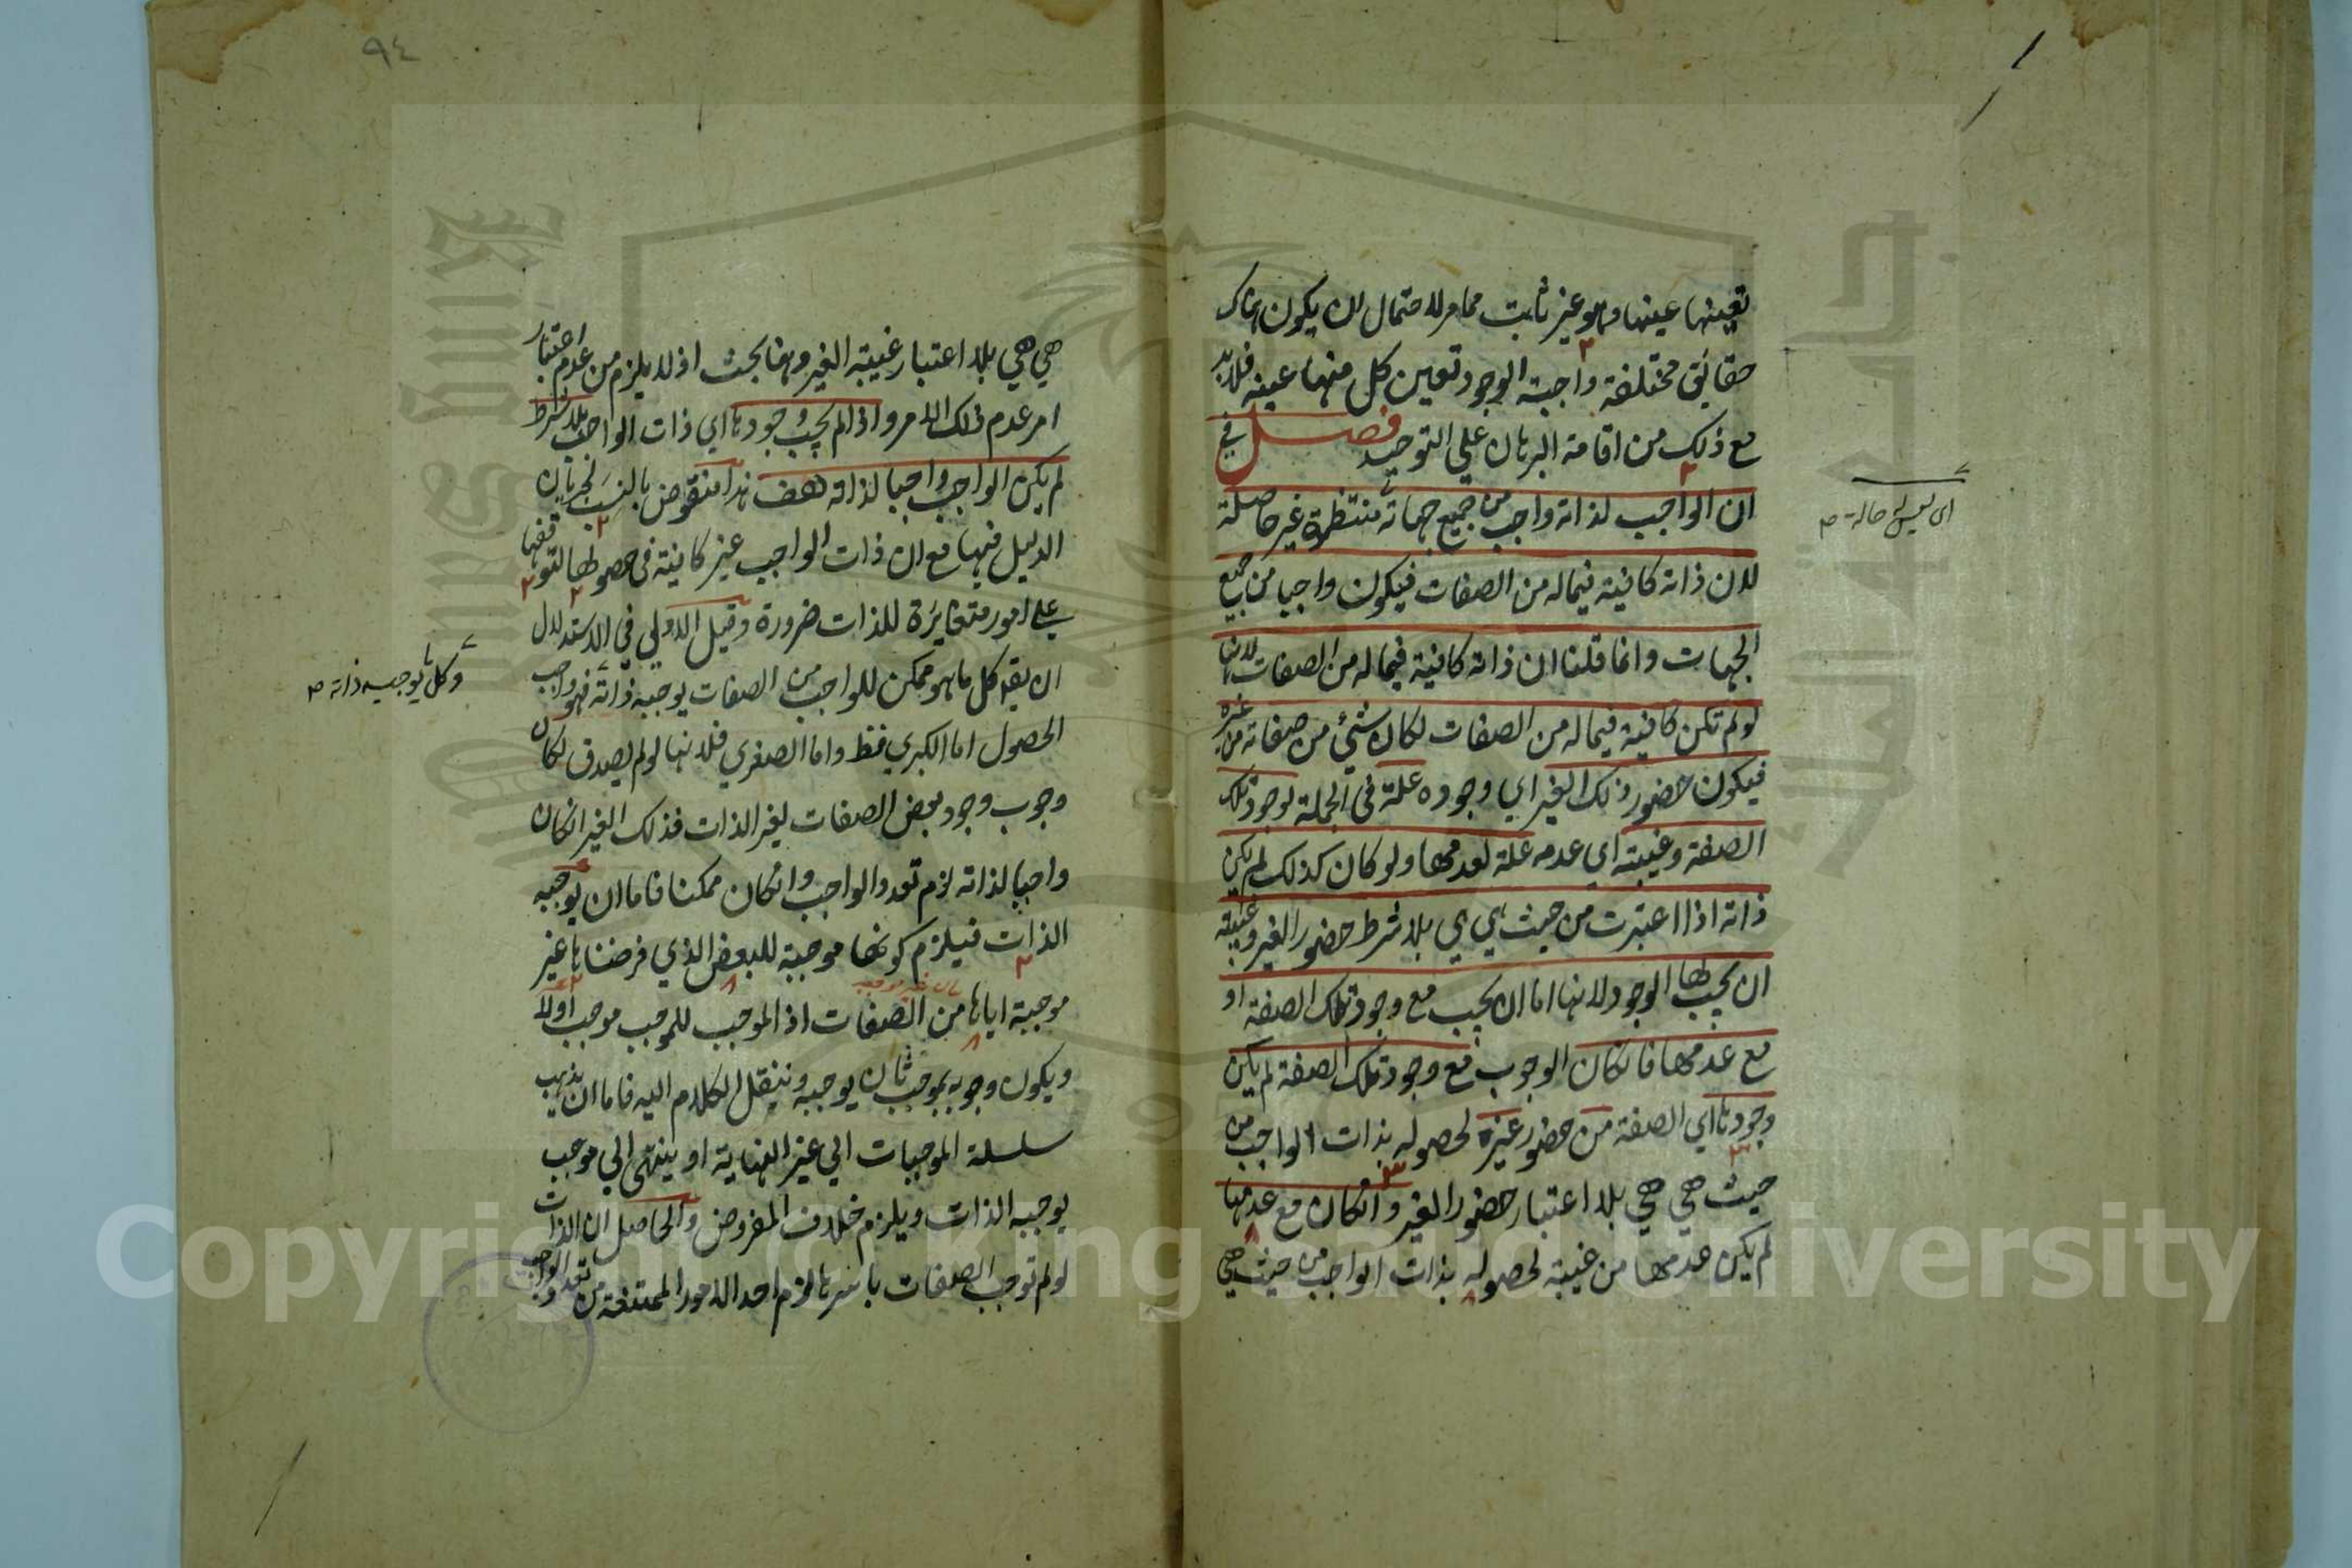 تعينها عينها وهو غير ثابت مما مر لاحتمال ان يكون هناك
حقائق مختلفة واجبة الوجود تعين كل منها عينه فلا بد
مع ذلك من اقامة البرهان علي التوحيد فصل في
ان الواجب لذاته واجب من جميع جهاته منتظرة غير حاصلة
اى ليس له حالة
لان ذاته كافية فيما له من الصفات فيكون واجبا من جميع
الجهات وانما قلنا ان ذاته كافية فيما له من الصفات لانها
لو لم تكن كافية فيما له من الصفات لكان شئ من صفاته من غيره
فيكون حضور ذلك الغير اي وجوده علة في الجملة لوجود تلك
الصفة وغيبته اي عدمه علة لعدمها ولو كان كذلك لم يكن
ذاته اذا اعتبرت من حيث هي هي بلا شرط حضور الغير وغيبته
ان يجب لها الوجود لانها اما ان يجب مع وجود تلك الصفة او
مع عدمها فان كان الوجوب مع وجود تلك الصفة لم يكن
وجودها اي الصفة من حضور غيره لحصوله بذات الواجب من
حيث هي هي بلا اعتبار حضور الغير وان كان مع عدمها
لم يكن عدمها من غيبته لحصوله بذات الواجب من حيث هي
٩٤
هي هي بلا اعتبار غيبة الغير وهنا بحث اذ لا يلزم من عدم اعتبار
امر عدم ذلك الامر واذا لم يجب وجودها اي ذات الواجب بلا شرط
لم يكن الواجب واجبا لذاته هف هذا منقوض بالنسب لجريان
الدليل فيها مع ان ذات الواجب غير كافية في حصولها لتوقفها
علي امور متغايرة للذات ضرورة وقيل الاولي في الاستدلال
ان يقو كل ما هو ممكن للواجب من الصفات يوجبه ذاته فهو واجب
وكل ما يوجبه ذاته
الحصول اما الكبري فظ واما الصغري فلانها لو لم يصدق لكان
وجوب وجود بعض الصفات لغير الذات فذلك الغير ان كان
واجبا لذاته لزم تعدد الواجب وان كان ممكنا فاما ان يوجبه
الذات فيلزم كونها موجبة للبعض الذي فرضناها غير
موجبة اياها من الصفات اذ الموجب للموجب موجب اولا
ويكون وجوبه بموجب ثان يوجبه وننقل الكلام اليه فاما ان يذهب
سلسلة الموجبات الي غير النهاية او ينتهى الي موجب
يوجبه الذات ويلزم خلاف المفروض والحاصل ان الذات
لو لم توجب الصفات باسرها لزم احد الامور الممتنعة من تعدد الواجب